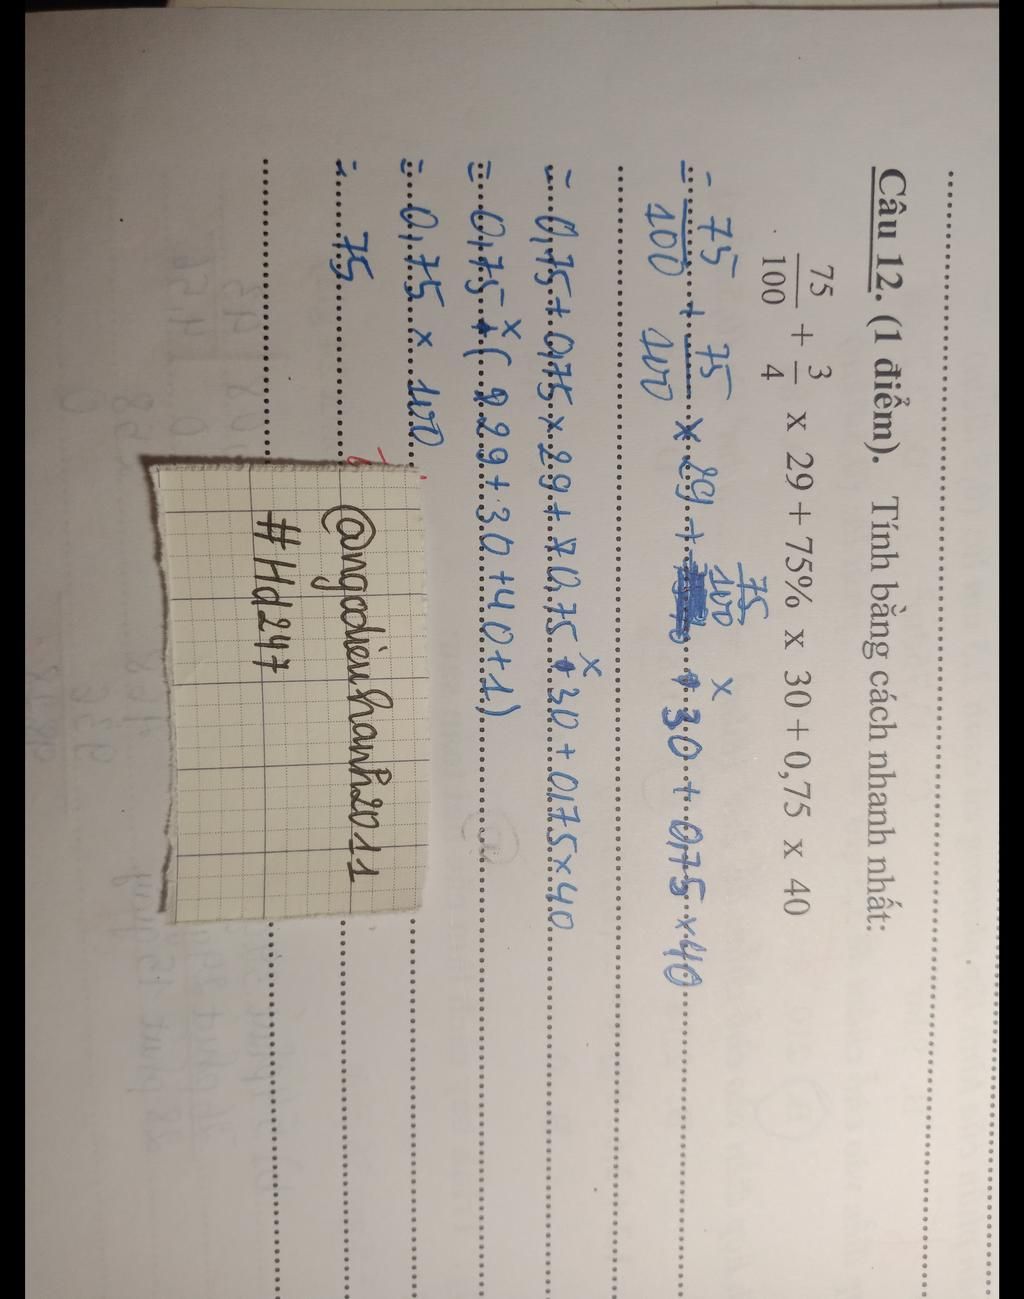 Câu 12. (1 điểm). Tính bằng cách nhanh nhất:
75/100 + 3/4 x 29 + 75% x 30 + 0,75 x 40
= 75/100 + 75/100 x 29 + 75/100 x 30 + 0,75 x 40
= 0,75 + 0,75 x 29 + 0,75 x 30 + 0,75 x 40
= 0,75 x (29 + 30 + 40 + 1)
= 0,75 x 100
= 75
@ngodieuhanh2011
#Hd247